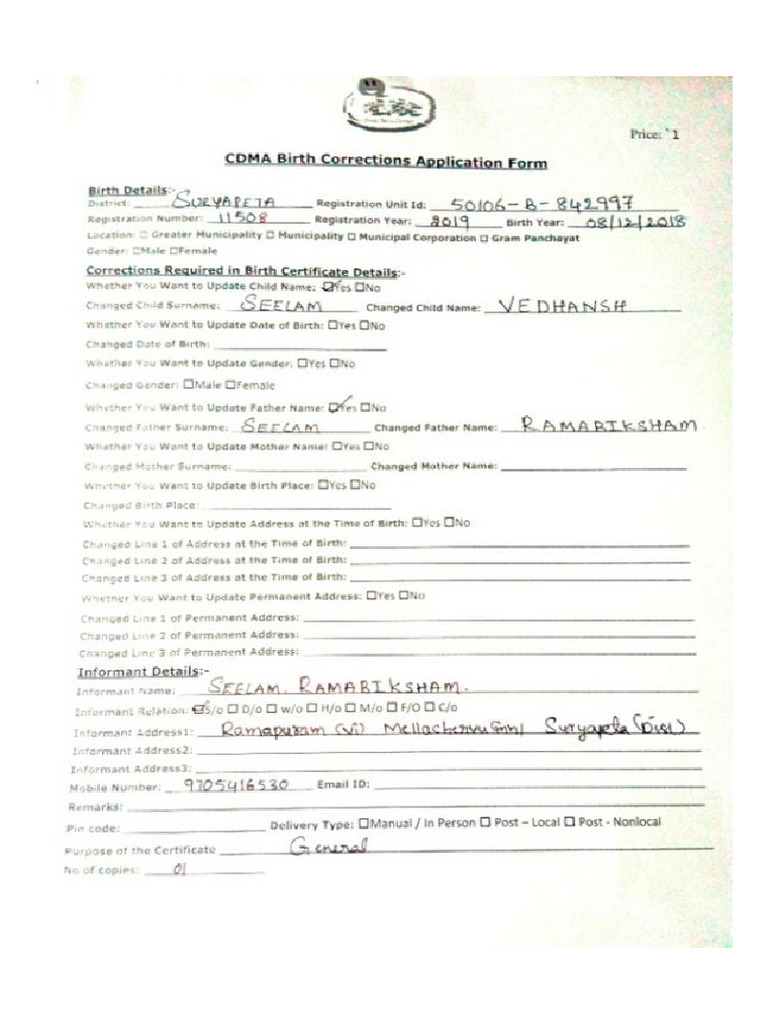 Price: ` 1
CDMA Birth Corrections Application Form
Birth Details:-
District: SURYAPETA Registration Unit Id: 50106-B-842997
Registration Number: 11508 Registration Year: 2019 Birth Year: 08/12/2018
Location: ☐ Greater Municipality ☐ Municipality ☐ Municipal Corporation ☐ Gram Panchayat
Gender: ☐Male ☐Female
Corrections Required in Birth Certificate Details:-
Whether You Want to Update Child Name: ☑Yes ☐No
Changed Child Surname: SEELAM Changed Child Name: VEDHANSH
Whether You Want to Update Date of Birth: ☐Yes ☐No
Changed Date of Birth:
Whether You Want to Update Gender: ☐Yes ☐No
Changed Gender: ☐Male ☐Female
Whether You Want to Update Father Name: ☑Yes ☐No
Changed Father Surname: SEELAM Changed Father Name: RAMARIKSHAM
Whether You Want to Update Mother Name: ☐Yes ☐No
Changed Mother Surname: Changed Mother Name:
Whether You Want to Update Birth Place: ☐Yes ☐No
Changed Birth Place:
Whether You Want to Update Address at the Time of Birth: ☐Yes ☐No
Changed Line 1 of Address at the Time of Birth:
Changed Line 2 of Address at the Time of Birth:
Changed Line 3 of Address at the Time of Birth:
Whether You Want to Update Permanent Address: ☐Yes ☐No
Changed Line 1 of Permanent Address:
Changed Line 2 of Permanent Address:
Changed Line 3 of Permanent Address:
Informant Details:-
Informant Name: SEELAM. RAMABIKSHAM.
Informant Relation: ☑S/o ☐ D/o ☐ w/o ☐ H/o ☐ M/o ☐ F/O ☐ C/o
Informant Address1: Ramapuram (vi) Suryapeta
Informant Address2:
Informant Address3:
Mobile Number: 9705416530 Email ID:
Remarks:
Pin code: Delivery Type: ☐Manual / In Person ☐ Post – Local ☐ Post - Nonlocal
Purpose of the Certificate General
No of copies: 01